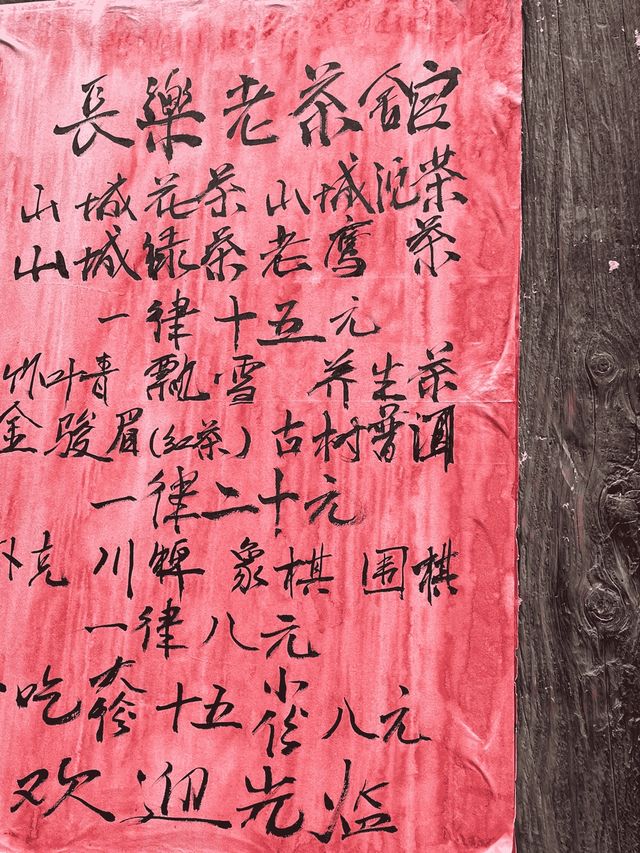 長樂老茶舘
山城花茶 山城沱茶
山城绿茶 老鹰茶
一律十五元
竹叶青 飘雪 养生茶
金骏眉(红茶) 古树普洱
一律二十元
克 川牌 象棋 围棋
一律八元
吃 大份十五 小份八元
欢迎光临